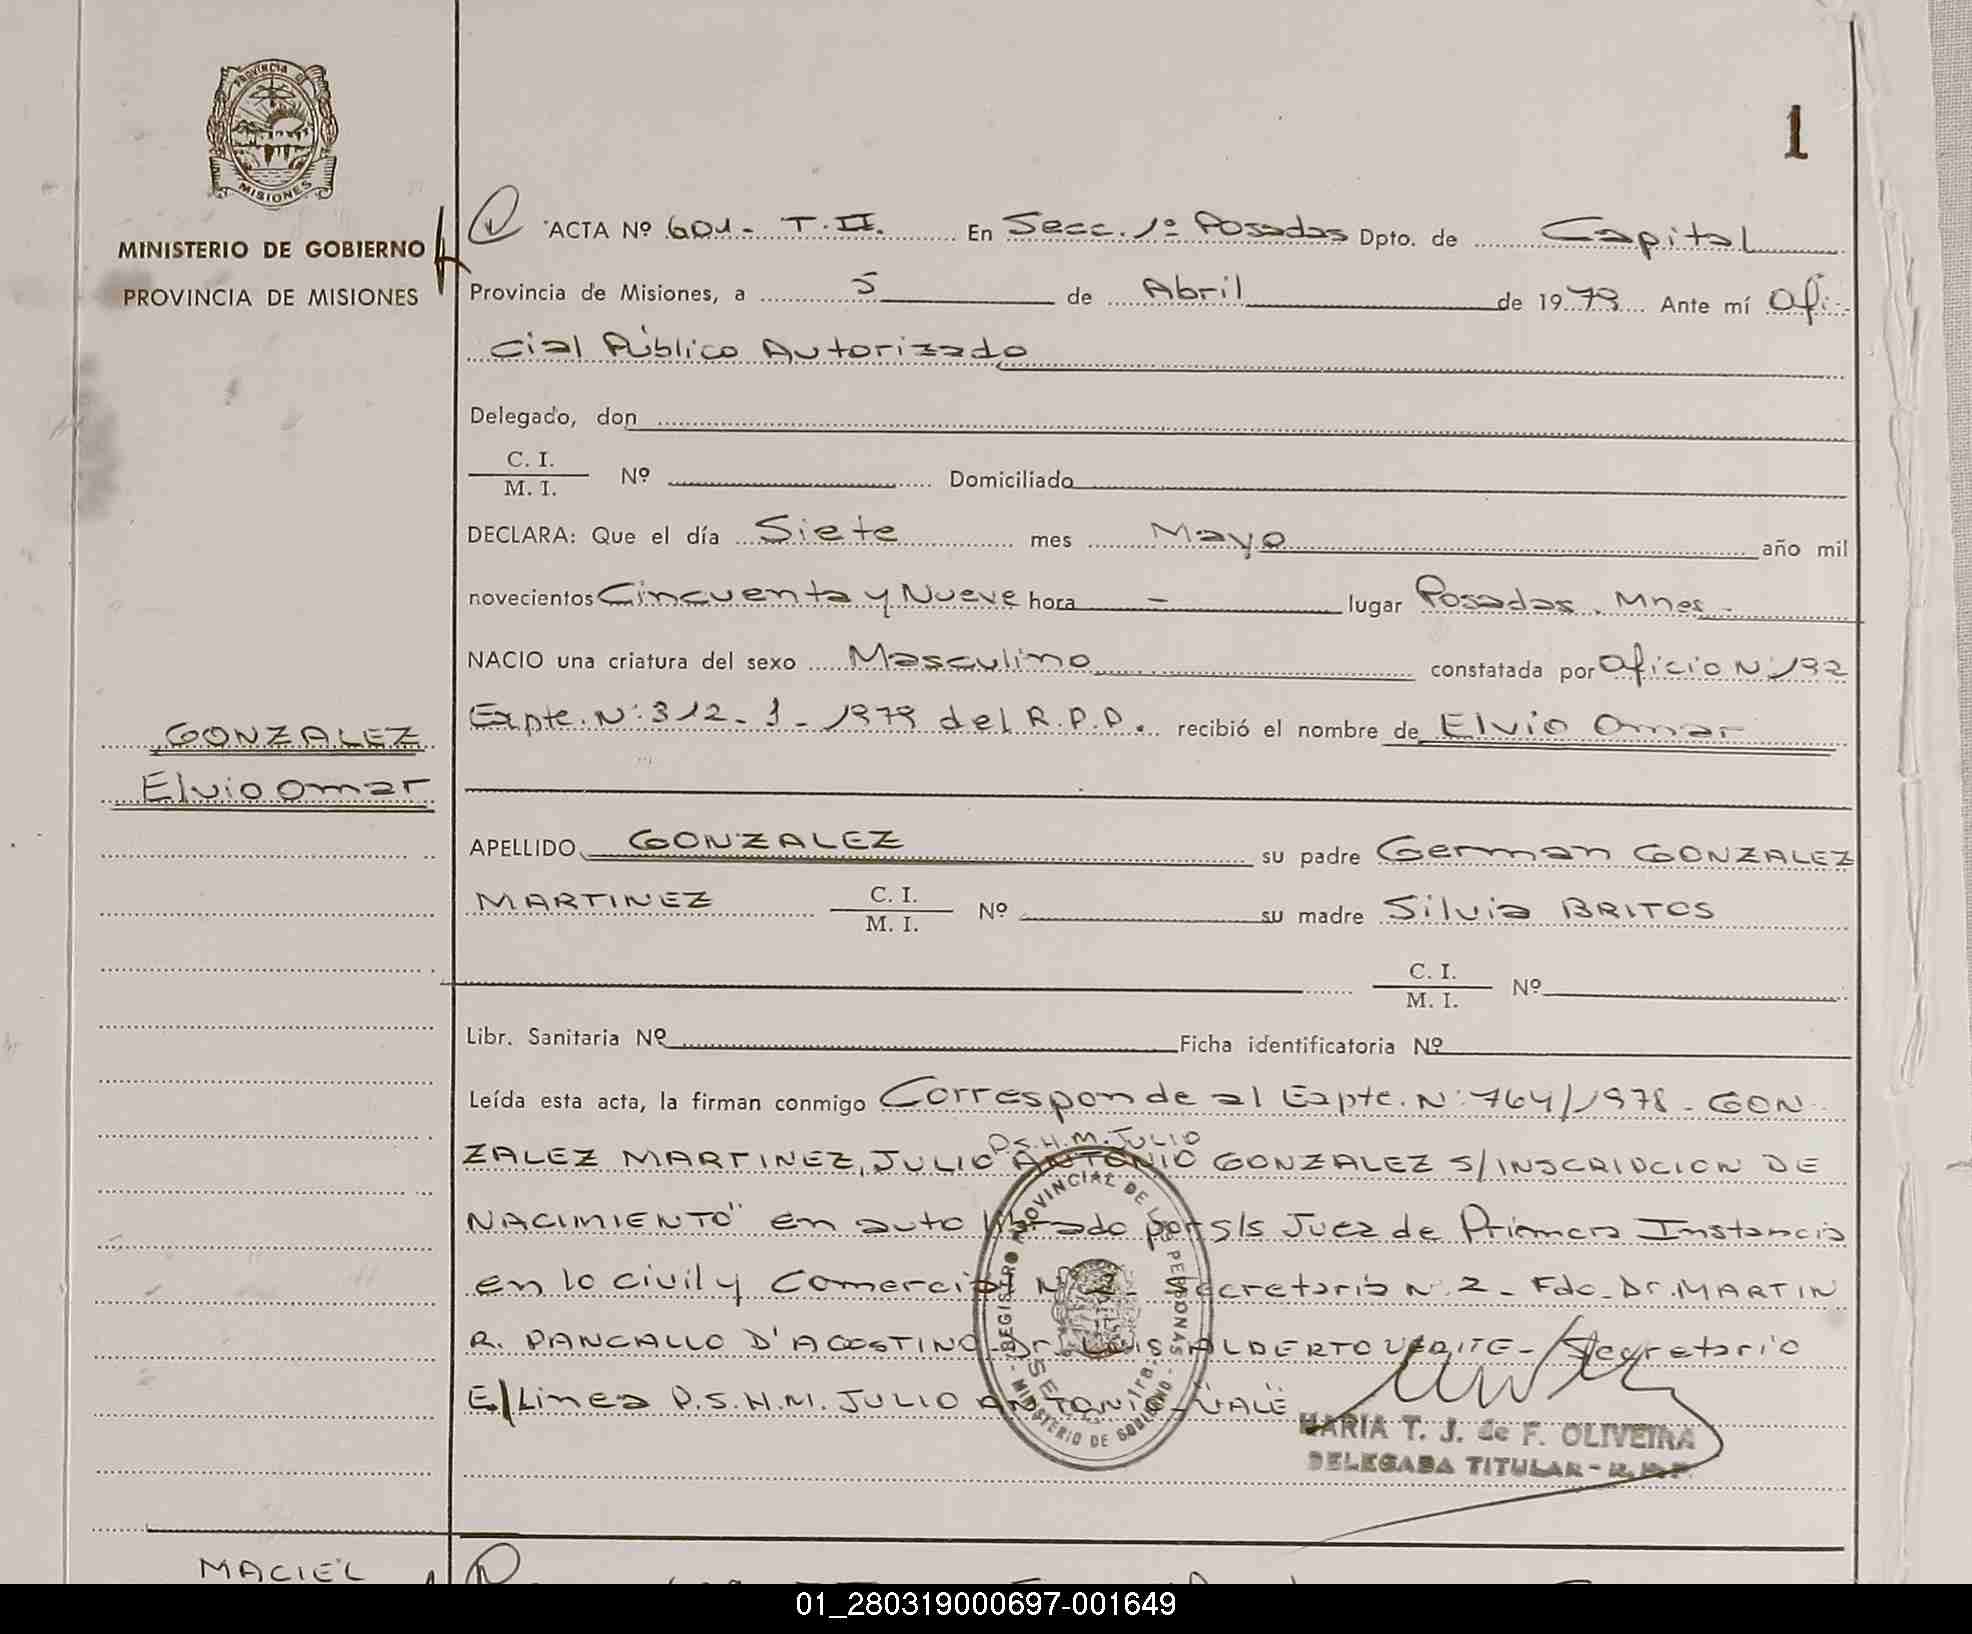 PROVINCIA DE
MISIONES
MINISTERIO DE GOBIERNO
PROVINCIA DE MISIONES
1
ACTA Nº 601 - T. II. En Secc. 1º Posadas Dpto. de Capital
Provincia de Misiones, a 5 de Abril de 1979 Ante mí Ofi-
cial Público Autorizado
Delegado, don
C. I.
M. I. Nº Domiciliado
DECLARA: Que el día Siete mes Mayo año mil
novecientos Cincuenta y Nueve hora - lugar Posadas. Mnes.
NACIO una criatura del sexo Masculino constatada por Oficio N: 192
Expte. N: 312 - 1 - 1979 del R.P.P. recibió el nombre de Elvio Omar
GONZALEZ
Elvio Omar
APELLIDO GONZALEZ su padre German GONZALEZ
MARTINEZ C. I. M. I. Nº su madre Silvia BRITOS
C. I.
M. I. Nº
Libr. Sanitaria Nº Ficha identificatoria Nº
Leída esta acta, la firman conmigo Corresponde al Expte. N: 764/1978 - GON
P.S.H.M. JULIO
ZALEZ MARTINEZ, JULIO ANTONIO GONZALEZ S/INSCRIPCION DE
NACIMIENTO" en auto librado por S/S Juez de Primera Instancia
en lo civil y Comercial Secretaria N: 2 - Fdo. Dr. MARTIN
R. PANGALLO D'AGOSTINO - Dr. LUIS ALBERTO VERITE - Secretario
E/Linea P.S.H.M. JULIO ANTONIO - VALE
REGISTRO PROVINCIAL DE LAS PERSONAS
MINISTERIO DE GOBIERNO
MARIA T. J. de F. OLIVEIRA
DELEGADA TITULAR - R.P.P.
MACIEL
01_280319000697-001649